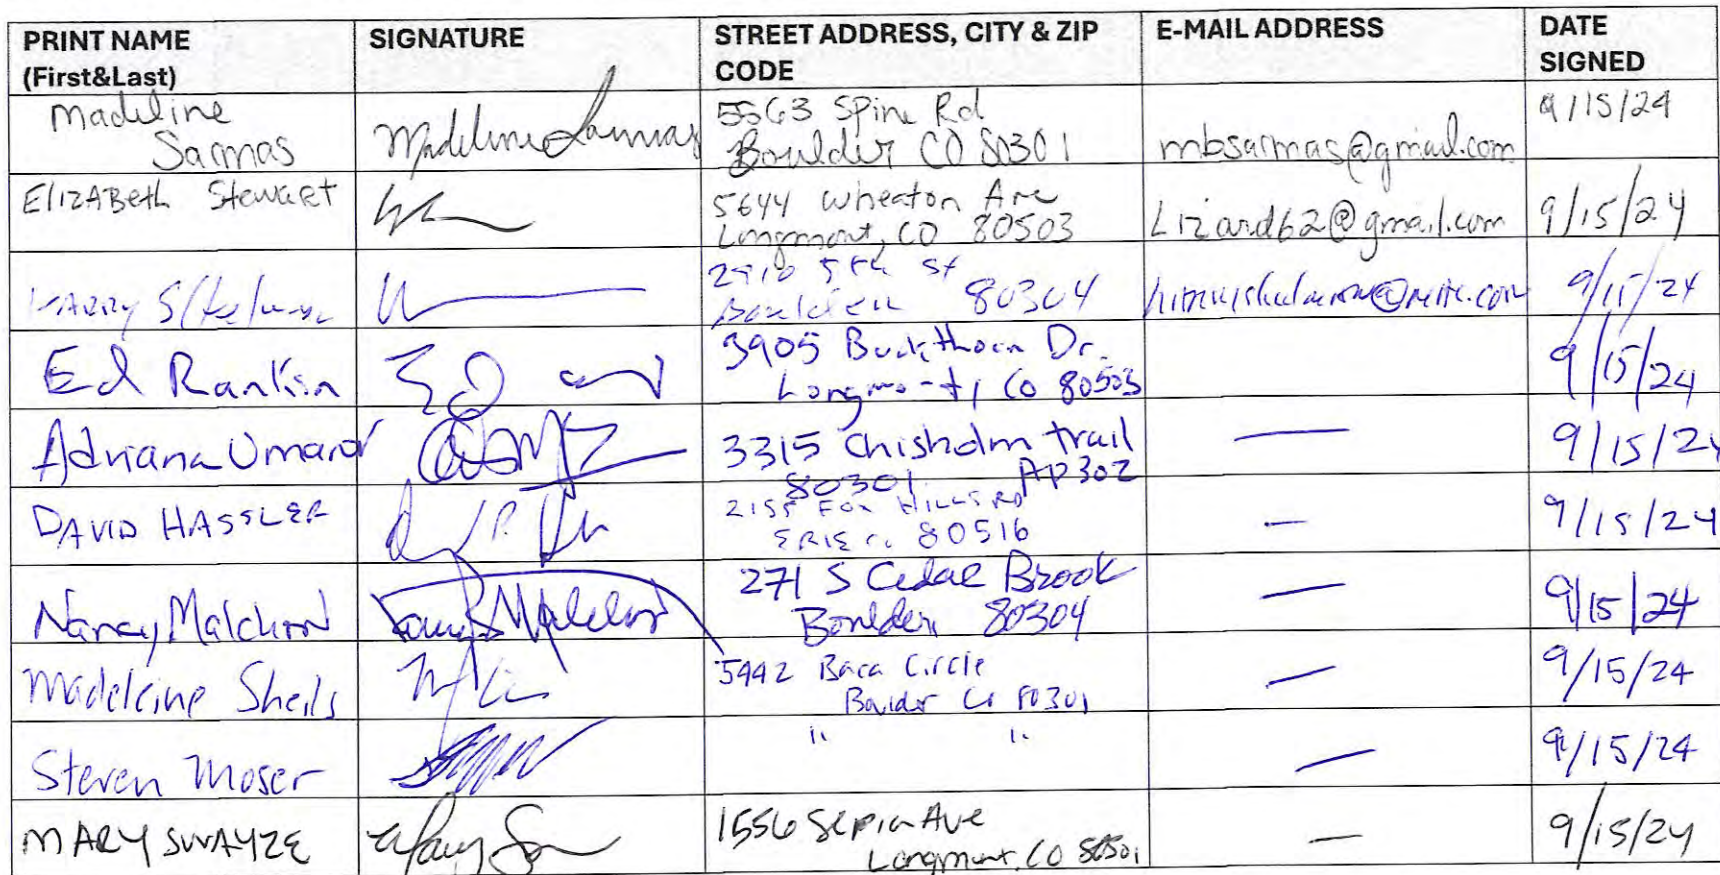 PRINT NAME
(First&Last)
SIGNATURE
STREET ADDRESS, CITY & ZIP
CODE
E-MAIL ADDRESS
DATE
SIGNED
Madeline
Sarmas
Madeline Sarmas
5563 Spine Rd
Boulder CO 80301
mbsarmas@gmail.com
9/15/24
ElizABeth Stewart
5644 Wheaton Ave
Longmont, CO 80503
Lizard62@gmail.com
9/15/24
5th St
Boulder 80304
9/15/24
Ed Rankin
3905 Buckthorn Dr.
Longmont, CO 80503
9/15/24
Adriana
3315 Chisholm trail
80301 Ap 302
—
9/15/24
DAVID HASSLER
2155 Fox HILLS RD
ERIE Co 80516
—
9/15/24
Nancy
271 S Cedar Brook
Boulder, 80304
—
9/15/24
Madeleine Sheils
5442 Baca Circle
Boulder Co 80301
—
9/15/24
Steven Moser
" "
—
9/15/24
MARY SWAYZE
1556 Sepia Ave
Longmont, CO 80501
—
9/15/24